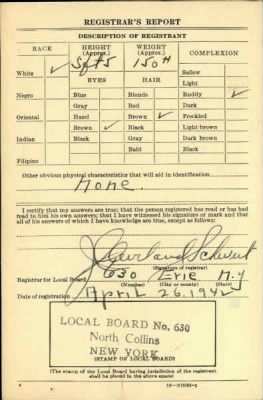 REGISTRAR'S REPORT
DESCRIPTION OF REGISTRANT
RACE HEIGHT (Approx.) WEIGHT (Approx.) COMPLEXION
White ✓ 5 ft 5 150 # Sallow
EYES HAIR Light
Negro Blue Blonde Ruddy ✓
Gray Red Dark
Oriental Hazel Brown ✓ Freckled
Brown ✓ Black Light brown
Indian Black Gray Dark brown
Bald Black
Filipino
Other obvious physical characteristics that will aid in identification
None.
I certify that my answers are true; that the person registered has read or has had
read to him his own answers; that I have witnessed his signature or mark and that
all of his answers of which I have knowledge are true, except as follows:
J Cleveland Schwert
(Signature of registrar)
Registrar for Local Board 630 Erie N.Y
(Number) (City or county) (State)
Date of registration April 26, 1942
LOCAL BOARD No. 630
North Collins
NEW YORK
(STAMP OF LOCAL BOARD)
(The stamp of the Local Board having jurisdiction of the registrant
shall be placed in the above space)